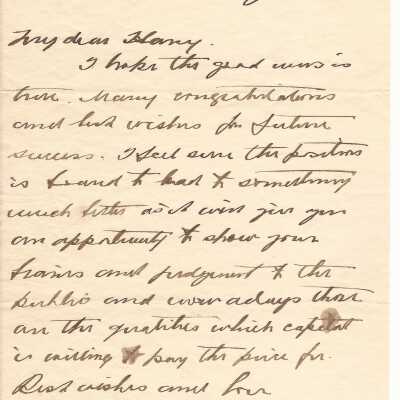 My dear Harry.
I hope the good news is
true. Many congratulations
and best wishes for future
success. I feel sure the position
is bound to lead to something
much better as it will give you
an opportunity to show your
brains and judgement to the
public and now a days those
are the qualities which capital
is willing to pay the price for.
Best wishes and love